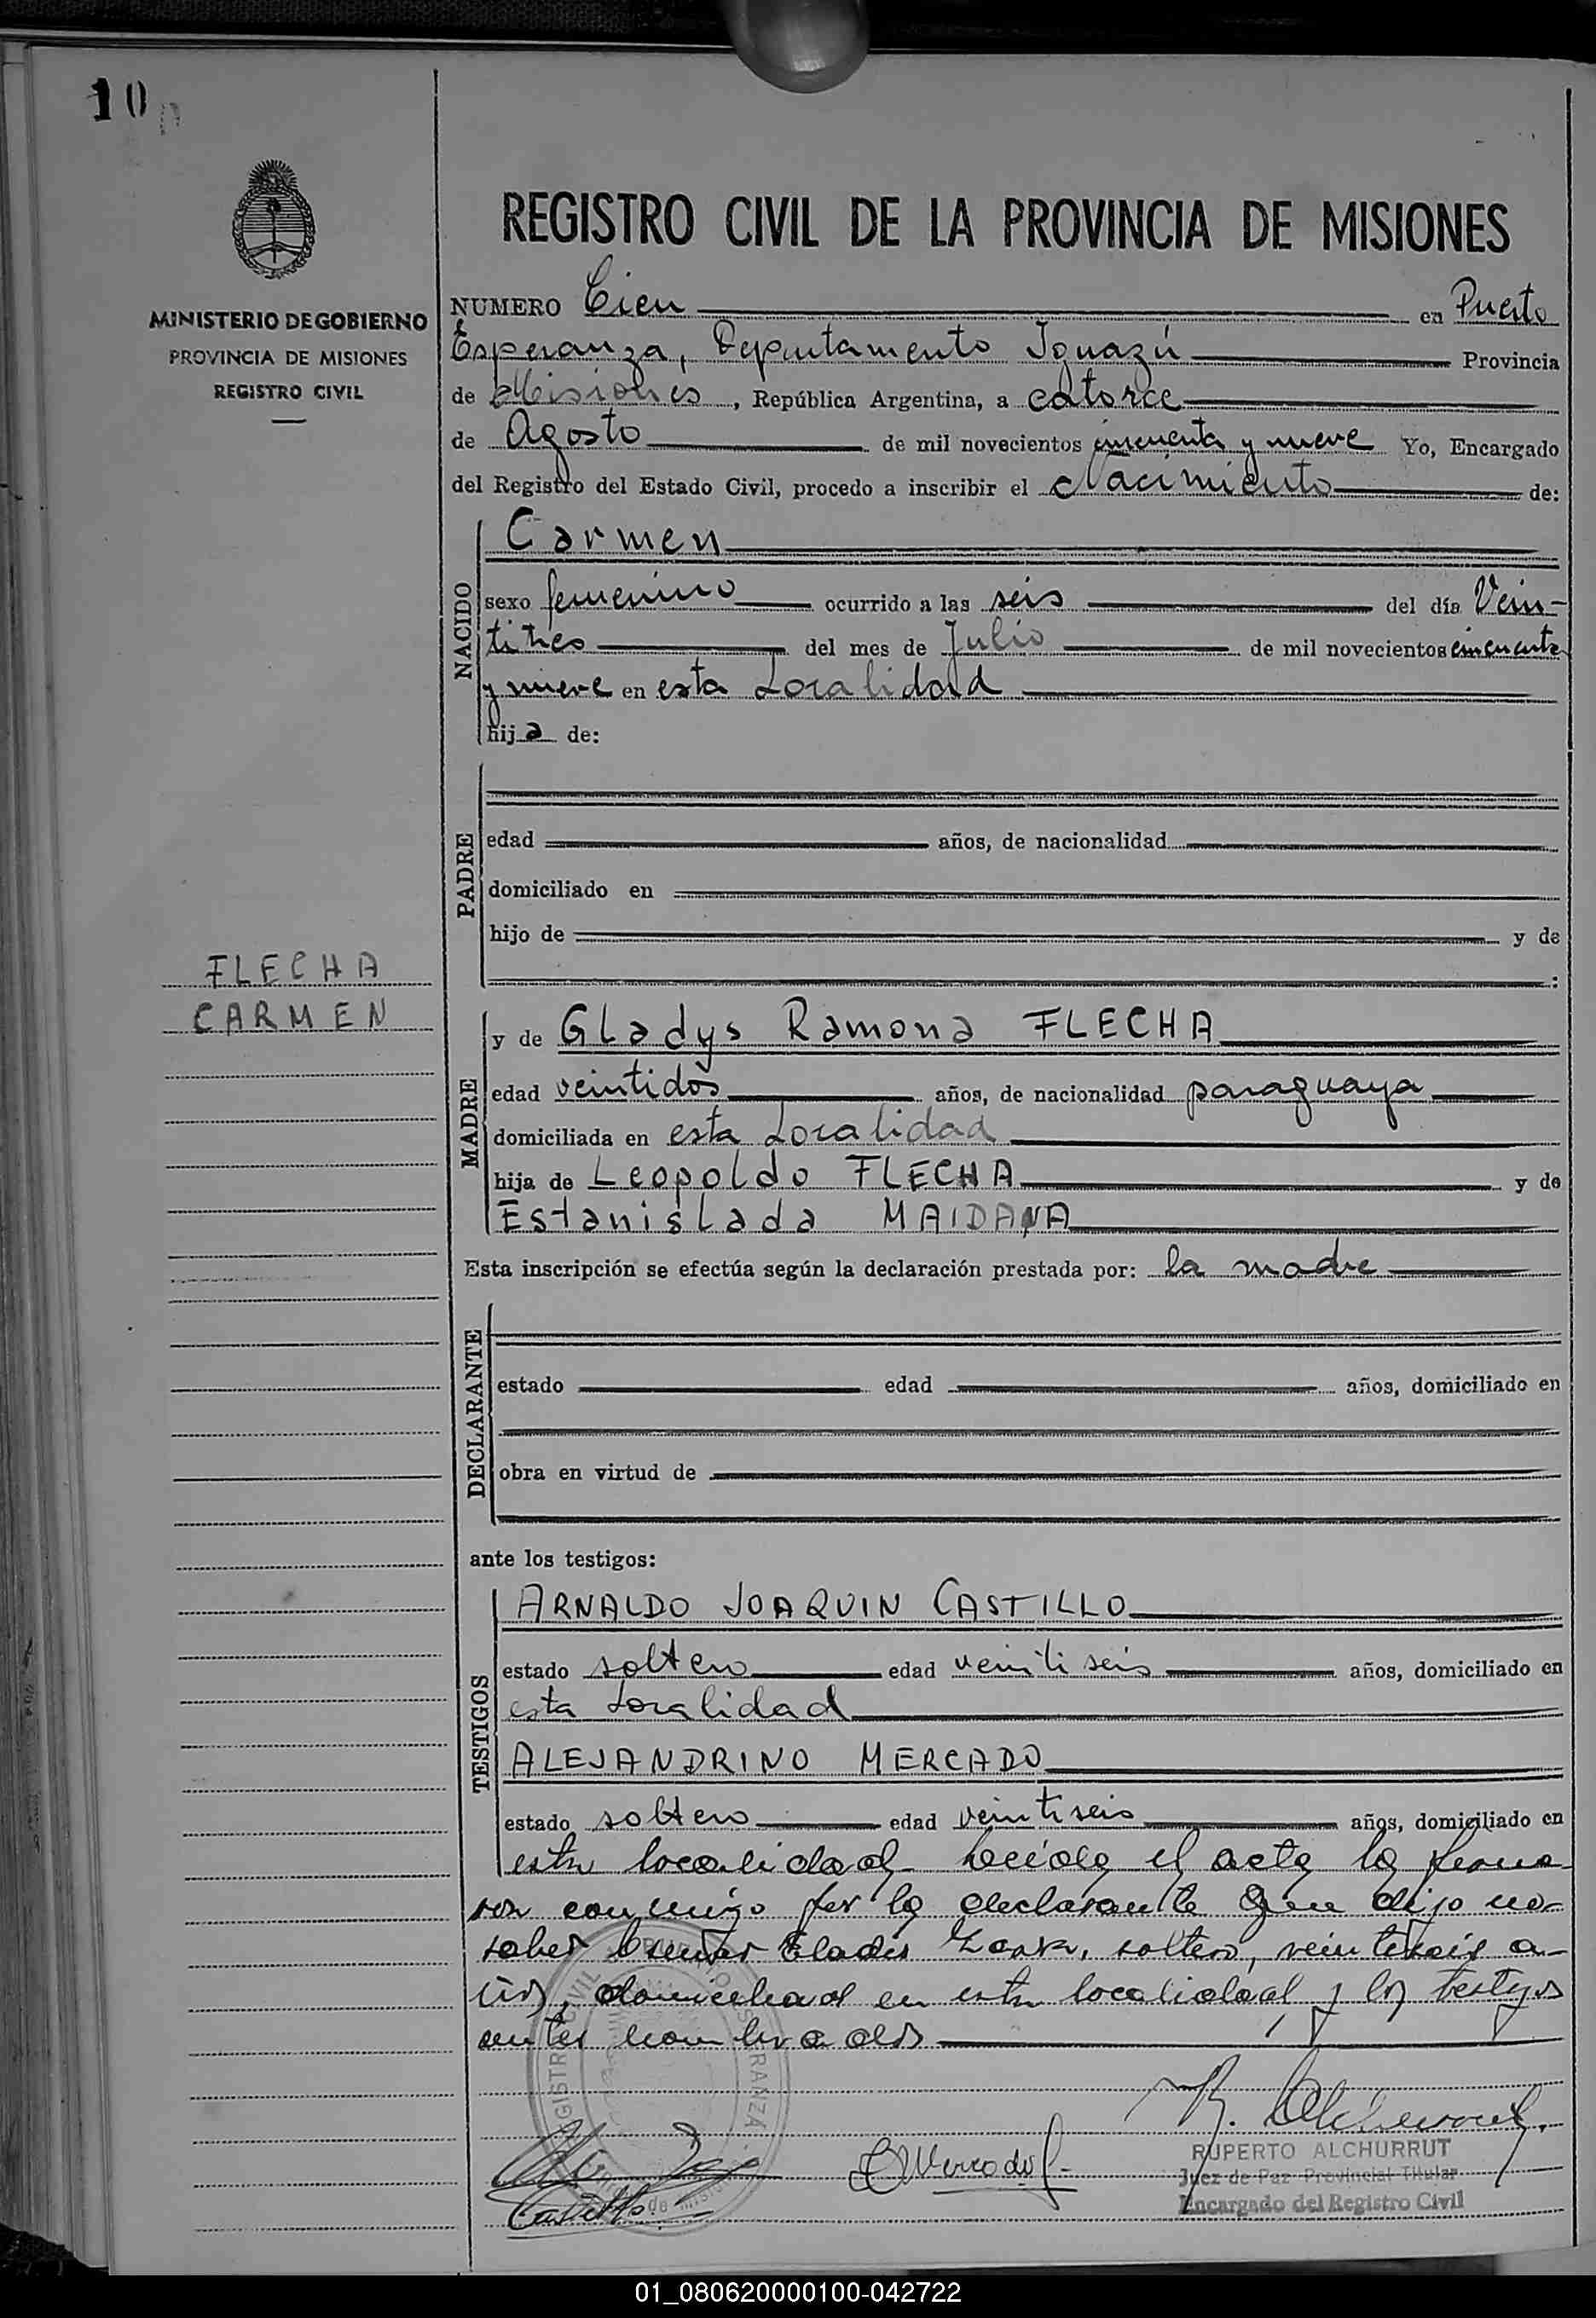 10
MINISTERIO DE GOBIERNO
PROVINCIA DE MISIONES
REGISTRO CIVIL
FLECHA
CARMEN
REGISTRO CIVIL DE LA PROVINCIA DE MISIONES
NUMERO Cien en Puerto
Esperanza, Departamento Iguazú Provincia
de Misiones, República Argentina, a catorce
de Agosto de mil novecientos cincuenta y nueve Yo, Encargado
del Registro del Estado Civil, procedo a inscribir el Nacimiento de:
NACIDO
Carmen
sexo femenino ocurrido a las seis del día Vein-
titres del mes de Julio de mil novecientos cincuenta
y nueve en esta Localidad
hija de:
PADRE
edad años, de nacionalidad
domiciliado en
hijo de y de
:
MADRE
y de Gladys Ramona FLECHA
edad veintidós años, de nacionalidad paraguaya
domiciliada en esta Localidad
hija de Leopoldo FLECHA y de
Estanislada MAIDANA
Esta inscripción se efectúa según la declaración prestada por: la madre
DECLARANTE
estado edad años, domiciliado en
obra en virtud de
ante los testigos:
TESTIGOS
ARNALDO JOAQUIN CASTILLO
estado soltero edad veintiseis años, domiciliado en
esta Localidad
ALEJANDRINO MERCADO
estado soltero edad veintiseis años, domiciliado en
esta localidad- Leída el acta la firma-
ron conmigo por la declarante que dijo no-
saber soltero, veintiseis a-
ños, domiciliado en esta localidad y los testigos
antes nombrados
Castillo
Mercado
RUPERTO ALCHURRUT
Juez de Paz Provincial Titular
Encargado del Registro Civil
01_080620000100-042722